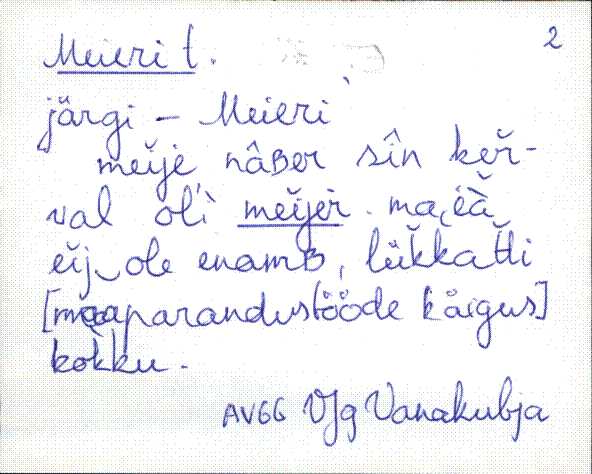 2
Meieri t.
järgi – Meieri
meije nâʙer sîn keŕ-
val oĺì meijèr. ma,
eij‿ole enamʙ, lükkaťti
[maaparandustööde käigus]
kòkku.
AV66 VJg Vanakubja